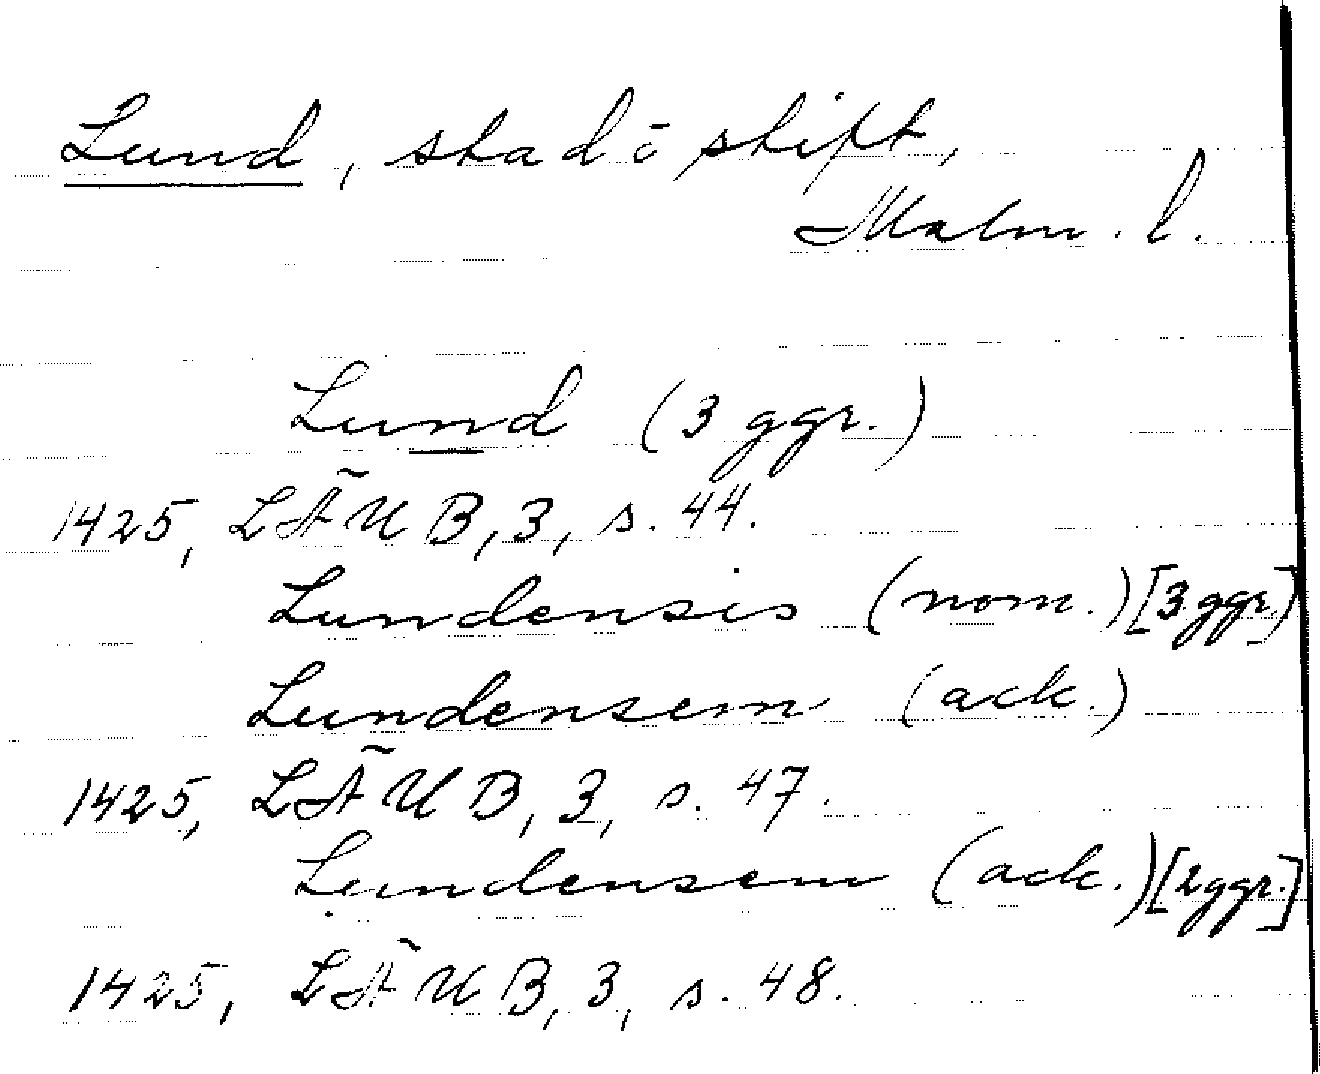 Lund, stad ō stift,
Malm. l.
Lund (3 ggr.)
1425, LÄUB, 3, s. 44.
Lundensis (nom.) [3 ggr.]
Lundensem (ack.)
1425, LÄUB, 3, s. 47.
Lundensem (ack.) [2 ggr.]
1425, LÄUB, 3, s. 48.